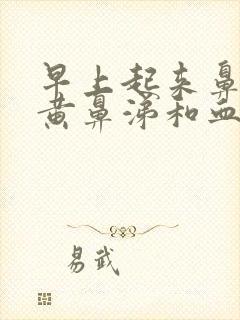 早上起来鼻
黄鼻涕和血
易武